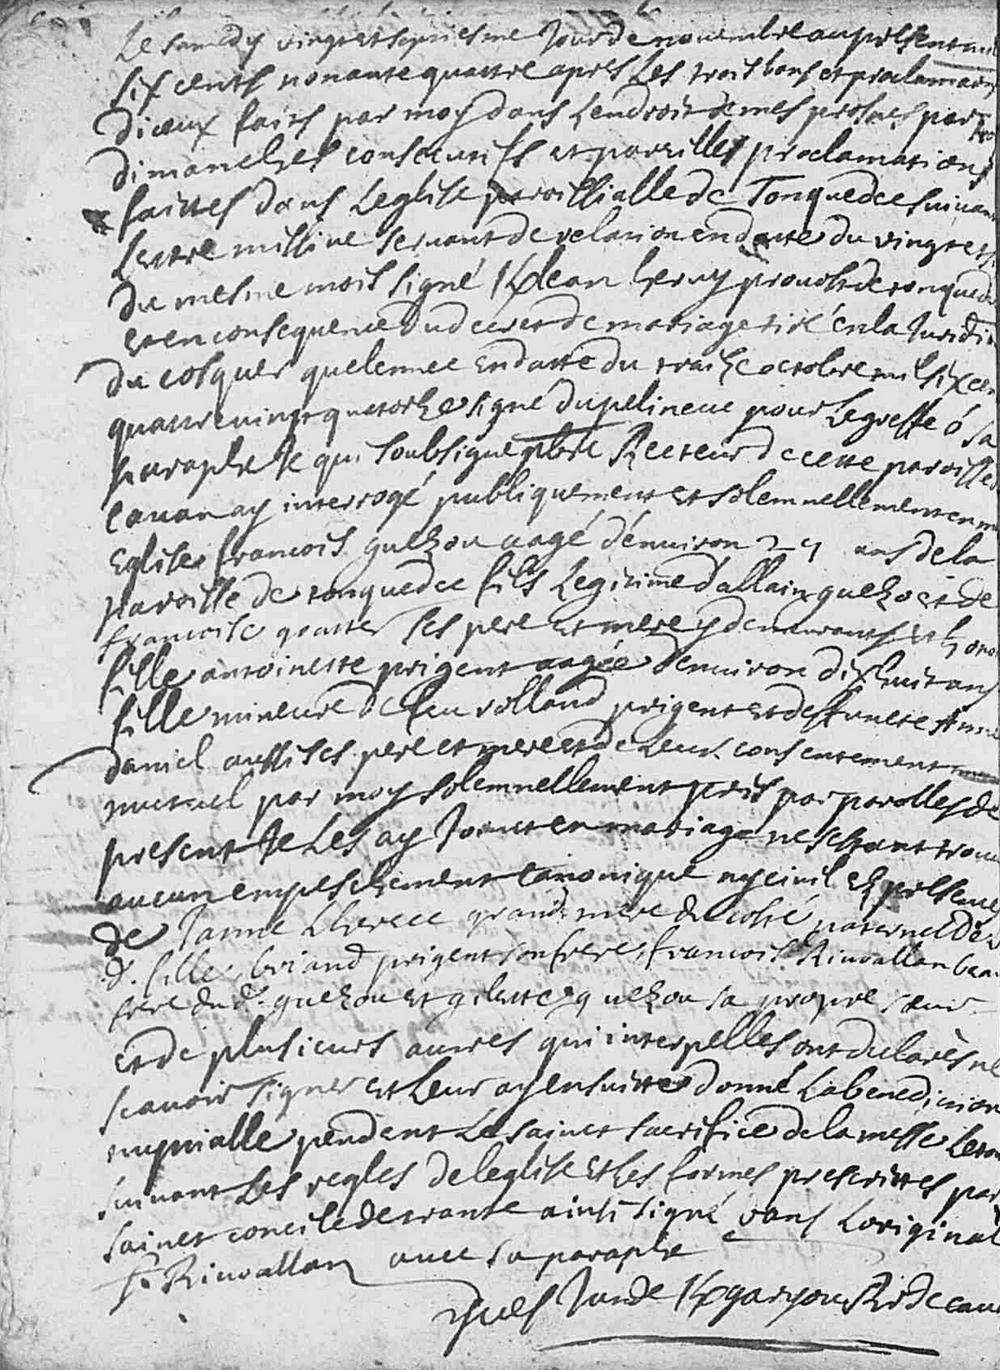 Le samedy vingt et septiesme Jour de novembre au present an
six cents nonante quattre apres les trois bans et proclamaon
diceux faits par moy dans lendroit de mes prosnes par
dimanches consecutifs et pareilles proclamations
faittes dans Leglise paroissialle de Tonquedec suivant
Lettre missive servant de relation en datte du vingt et
du mesme mois signé Jean provost de tonquedec
et en consequence du decret de mariage tiré en la Juridi
du cosquer quelennec en datte du traize octobre mil six cen
quattre vingt quatorze signé dupelineuc pour Le greffe ó sa
paraphe Je qui soubsigne pbre Recteur de cette paroisse
cavan ay interrogé publiquement et solemnellement en m
Eglise francois guezou aagé d'environ 25 ans de la
paroisse de tonquedec fils Legitime d'allain guezo et de
francoise goatter ses pere et mere y demeurants et hon
fille antoinette prigent aagée d'environ dix huit ans
fille mineure de feu rolland prigent et deffuncte Anne
daniel aussi ses pere et mere et de Leur consentement
mutuel par moy solemnellement pris par parolles de
present Je Les ay Joints en mariage ne sestant trouv
aucun empeschement canonique ny civil En presence
de Janne Lhereec grande mere du costé paternel de
d. fille, briand prigent son frere, francois Rivoallan beau
frere dud. guezou et gilette guezou sa propre soeur
et de plusieurs autres qui interpellés ont declarés ne
scavoir signer et Leur ay ensuitte donné La benediction
nuptialle pendent Le sainct sacrifice de la messe Le tou
suivant Les regles de leglise et Les formes prescrittes par
sainct concile de trante ainsi signé dans Loriginal
f. Rivoallan avec sa paraphe
Yves Jande Kgariou Rr de cavan